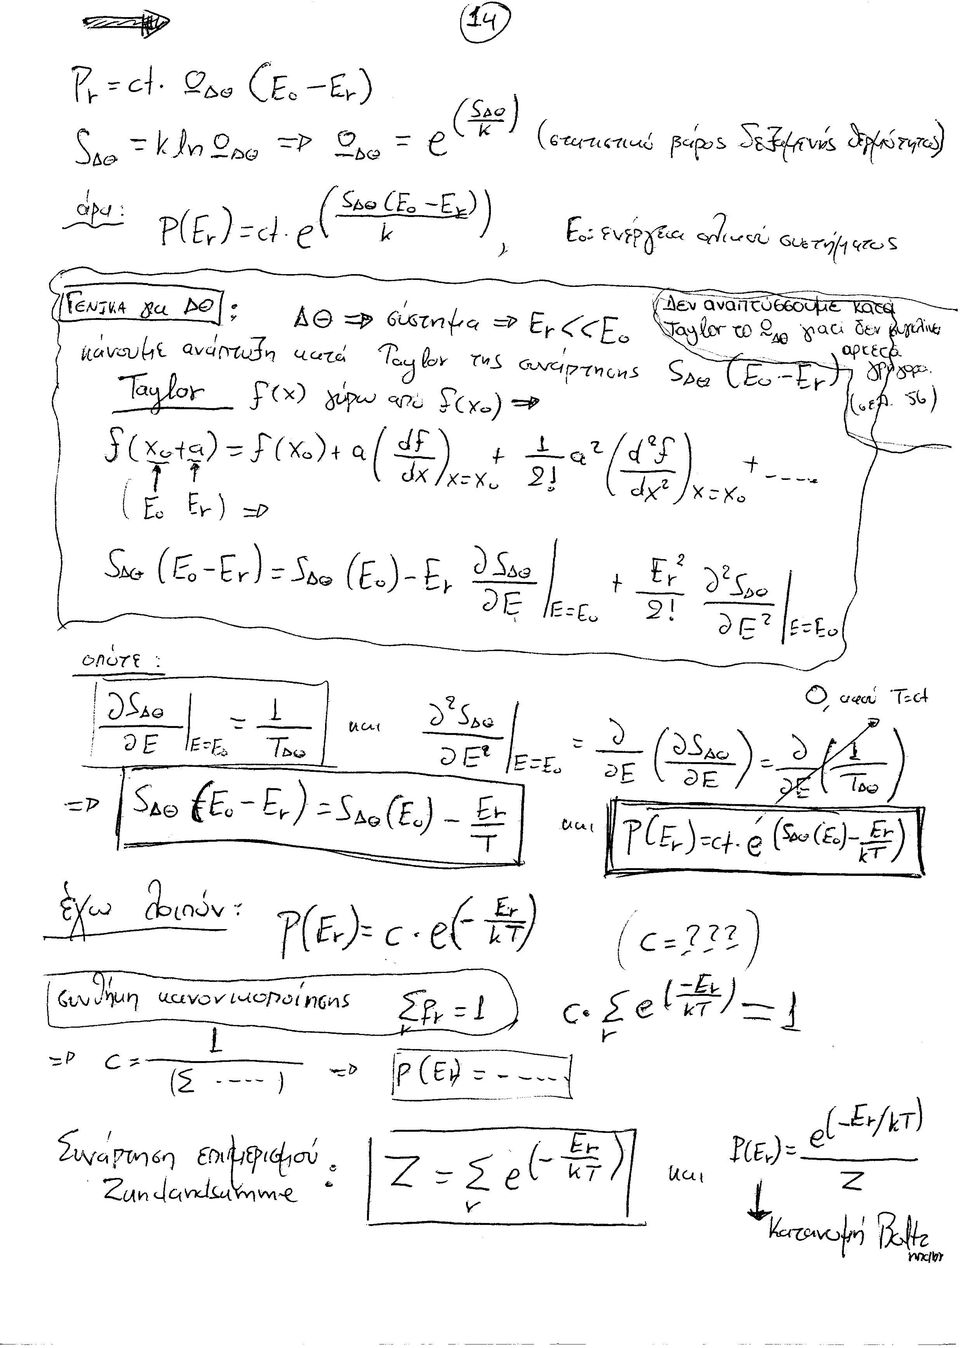 14
P_r = ct. Ω_ΔΘ (E_o - E_r)
S_ΔΘ = k ln Ω_ΔΘ ⇒ Ω_ΔΘ = e^(S_ΔΘ/k) (στατιστικό βάρος δεξαμενής θερμότητας)
άρα: P(E_r) = ct. e^(S_ΔΘ(E_o - E_k)/k), E_o: ενέργεια ολικού συστήματος
ΓΕΝΙΚΑ για ΔΘ: ΔΘ ⇒ σύστημα ⇒ E_r << E_o
Δεν αναπτύσσουμε κατά
Taylor το Ω_ΔΘ γιατί δεν συγκλίνει
αρκετά
γρήγορα.
(σελ. 56)
κάνουμε ανάπτυξη κατά Taylor της συνάρτησης S_ΔΘ (E_o - E_r)
Taylor f(x) γύρω από f(x_o) ⇒
f(x_o + a) = f(x_o) + a (df/dx)_{x=x_o} + 1/2! a² (d²f/dx²)_{x=x_o} + .....
↑ ↑
(E_o E_r) ⇒
S_ΔΘ (E_o - E_r) = S_ΔΘ (E_o) - E_r ∂S_ΔΘ/∂E |_{E=E_o} + E_r²/2! ∂²S_ΔΘ/∂E² |_{E=E_o}
οπότε:
0, αφού T=ct
∂S_ΔΘ/∂E |_{E=E_o} = 1/T_ΔΘ και ∂²S_ΔΘ/∂E² |_{E=E_o} = ∂/∂E (∂S_ΔΘ/∂E) = ∂/∂E (1/T_ΔΘ)
⇒ S_ΔΘ (E_o - E_r) = S_ΔΘ (E_o) - E_r/T και P(E_r) = ct. e^(S_ΔΘ(E_o) - E_r/kT)
έχω λοιπόν: P(E_r) = c · e^(- E_r/kT) (c = ???)
συνθήκη κανονικοποίησης Σ_r p_r = 1 c · Σ_r e^(-E_r/kT) = 1
⇒ c = 1/(Σ .....) ⇒ P(E_r) = .....
Συνάρτηση επιμερισμού : Z = Σ_r e^(- E_r/kT) και P(E_r) = e^(-E_r/kT)/Z
Zundandsumme
↓
Κατανομή Boltz
mann